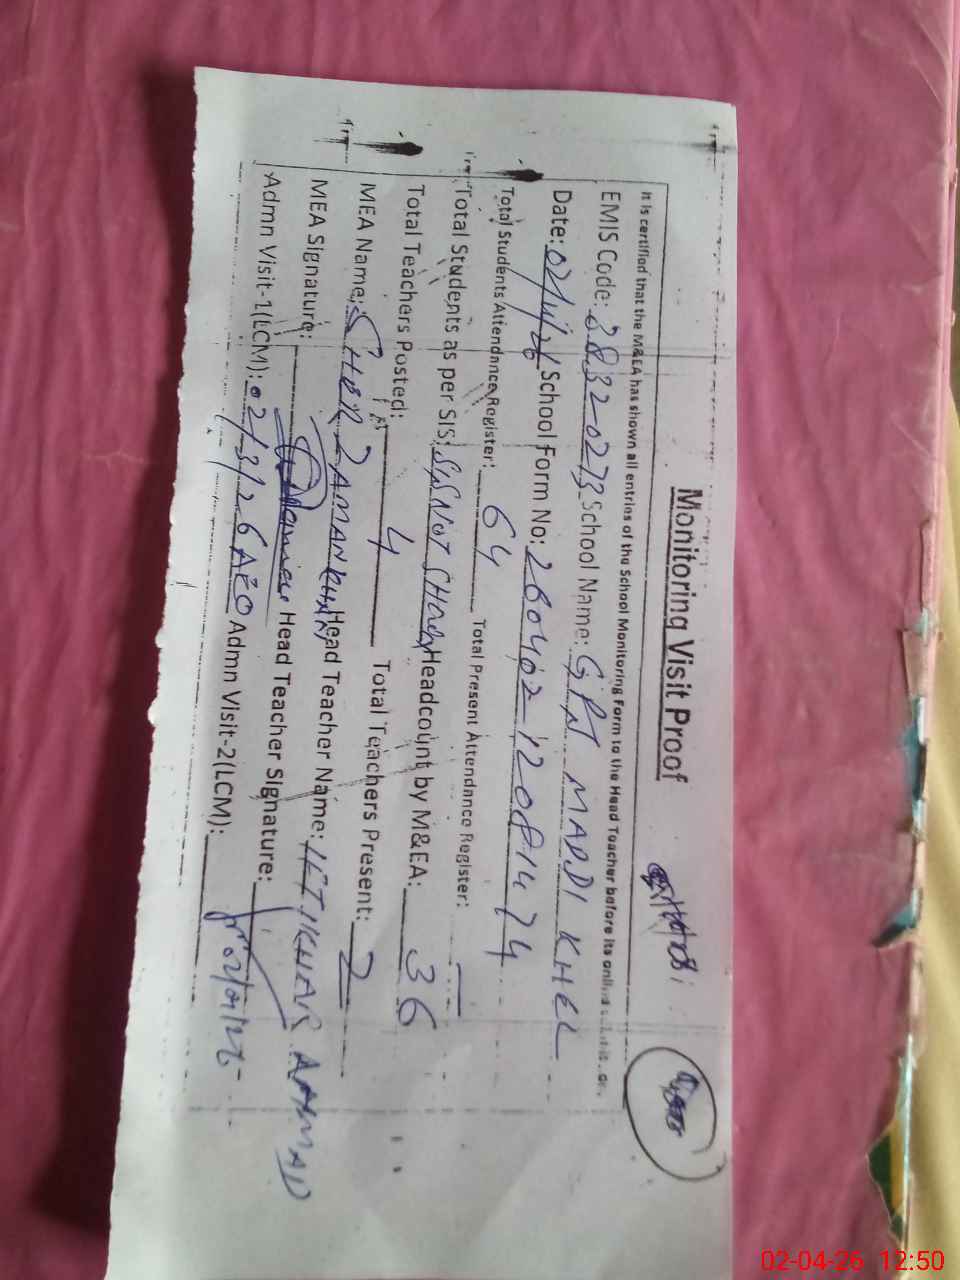 Monitoring Visit Proof
It is certified that the M&EA has shown all entries of the School Monitoring Form to the Head Teacher before its online
EMIS Code: 38832-0273 School Name: GPS MADDI KHEL
Date: 02/4/26 School Form No: 26040212081474
Total Students Attendance Register: 64 Total Present Attendance Register: —
Total Students as per SIS: SIS NOT SHOWN Headcount by M&EA: 36
Total Teachers Posted: 4 Total Teachers Present: 2
MEA Name: SHER ZAMAN KHAN Head Teacher Name: IFTIKHAR AHMAD
MEA Signature: Head Teacher Signature:
Admn Visit-1(LCM): 02/3/26 AEO Admn Visit-2(LCM):
02/04/26
02-04-26 12:50